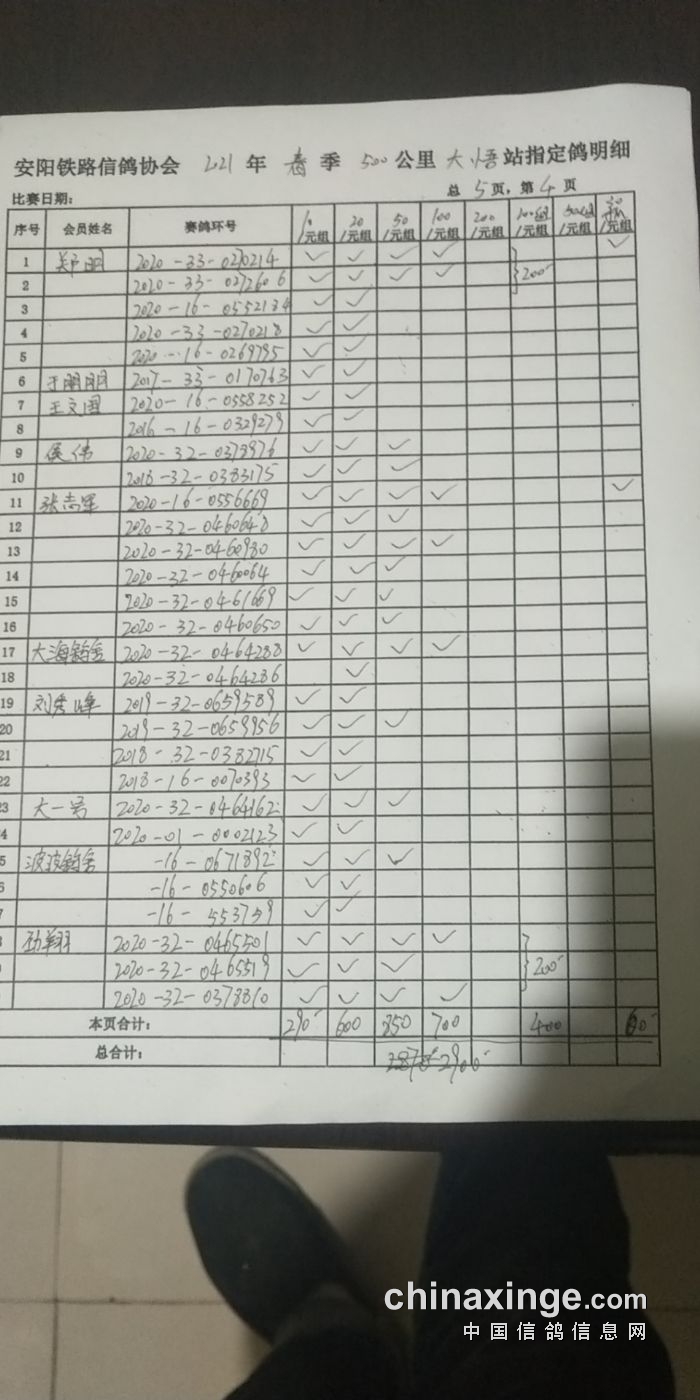 安阳铁路信鸽协会 2021 年 春 季 500 公里 大悟 站指定鸽明细
比赛日期: 总 5 页, 第 4 页
序号 会员姓名 赛鸽环号 10/元组 20/元组 50/元组 100/元组 200/元组 /元组 /元组 /元组
1 郑明 2020-33-0270214 ✓ ✓ ✓ ✓ ✓
2 2020-33-0272606 ✓ ✓ ✓ ✓ 200
3 2020-16-0552184 ✓ ✓
4 2020-33-0270218 ✓ ✓
5 2020-16-0269795 ✓ ✓
6 于朋朋 2017-33-0170763 ✓ ✓
7 王文国 2020-16-0558252 ✓ ✓
8 2016-16-0329279 ✓ ✓
9 侯伟 2020-32-0378976 ✓ ✓ ✓
10 2018-32-0383175 ✓ ✓ ✓
11 张志军 2020-16-0556669 ✓ ✓ ✓ ✓ ✓
12 2020-32-0460648 ✓ ✓ ✓
13 2020-32-0460980 ✓ ✓ ✓ ✓
14 2020-32-0460064 ✓ ✓ ✓
15 2020-32-0461669 ✓ ✓ ✓
16 2020-32-0460650 ✓ ✓ ✓
17 大海鸽舍 2020-32-0464288 ✓ ✓ ✓ ✓
18 2020-32-0464286 ✓
19 刘秀峰 2019-32-0659589 ✓ ✓
20 2019-32-0659956 ✓ ✓ ✓
21 2018-32-0382715 ✓ ✓
22 2018-16-0070393 ✓ ✓
3 大一号 2020-32-0464162 ✓ ✓ ✓
4 2020-01-0002123 ✓ ✓
5 波波鸽舍 -16-0671892 ✓ ✓ ✓
6 -16-0550606 ✓ ✓
7 -16-553759 ✓ ✓
劲翔 2020-32-0465501 ✓ ✓ ✓ ✓
2020-32-0465519 ✓ ✓ ✓ 200
2020-32-0378810 ✓ ✓ ✓ ✓
本页合计: 290 600 850 700 400 60
总合计: 2900
chinaxinge.com
中国信鸽信息网